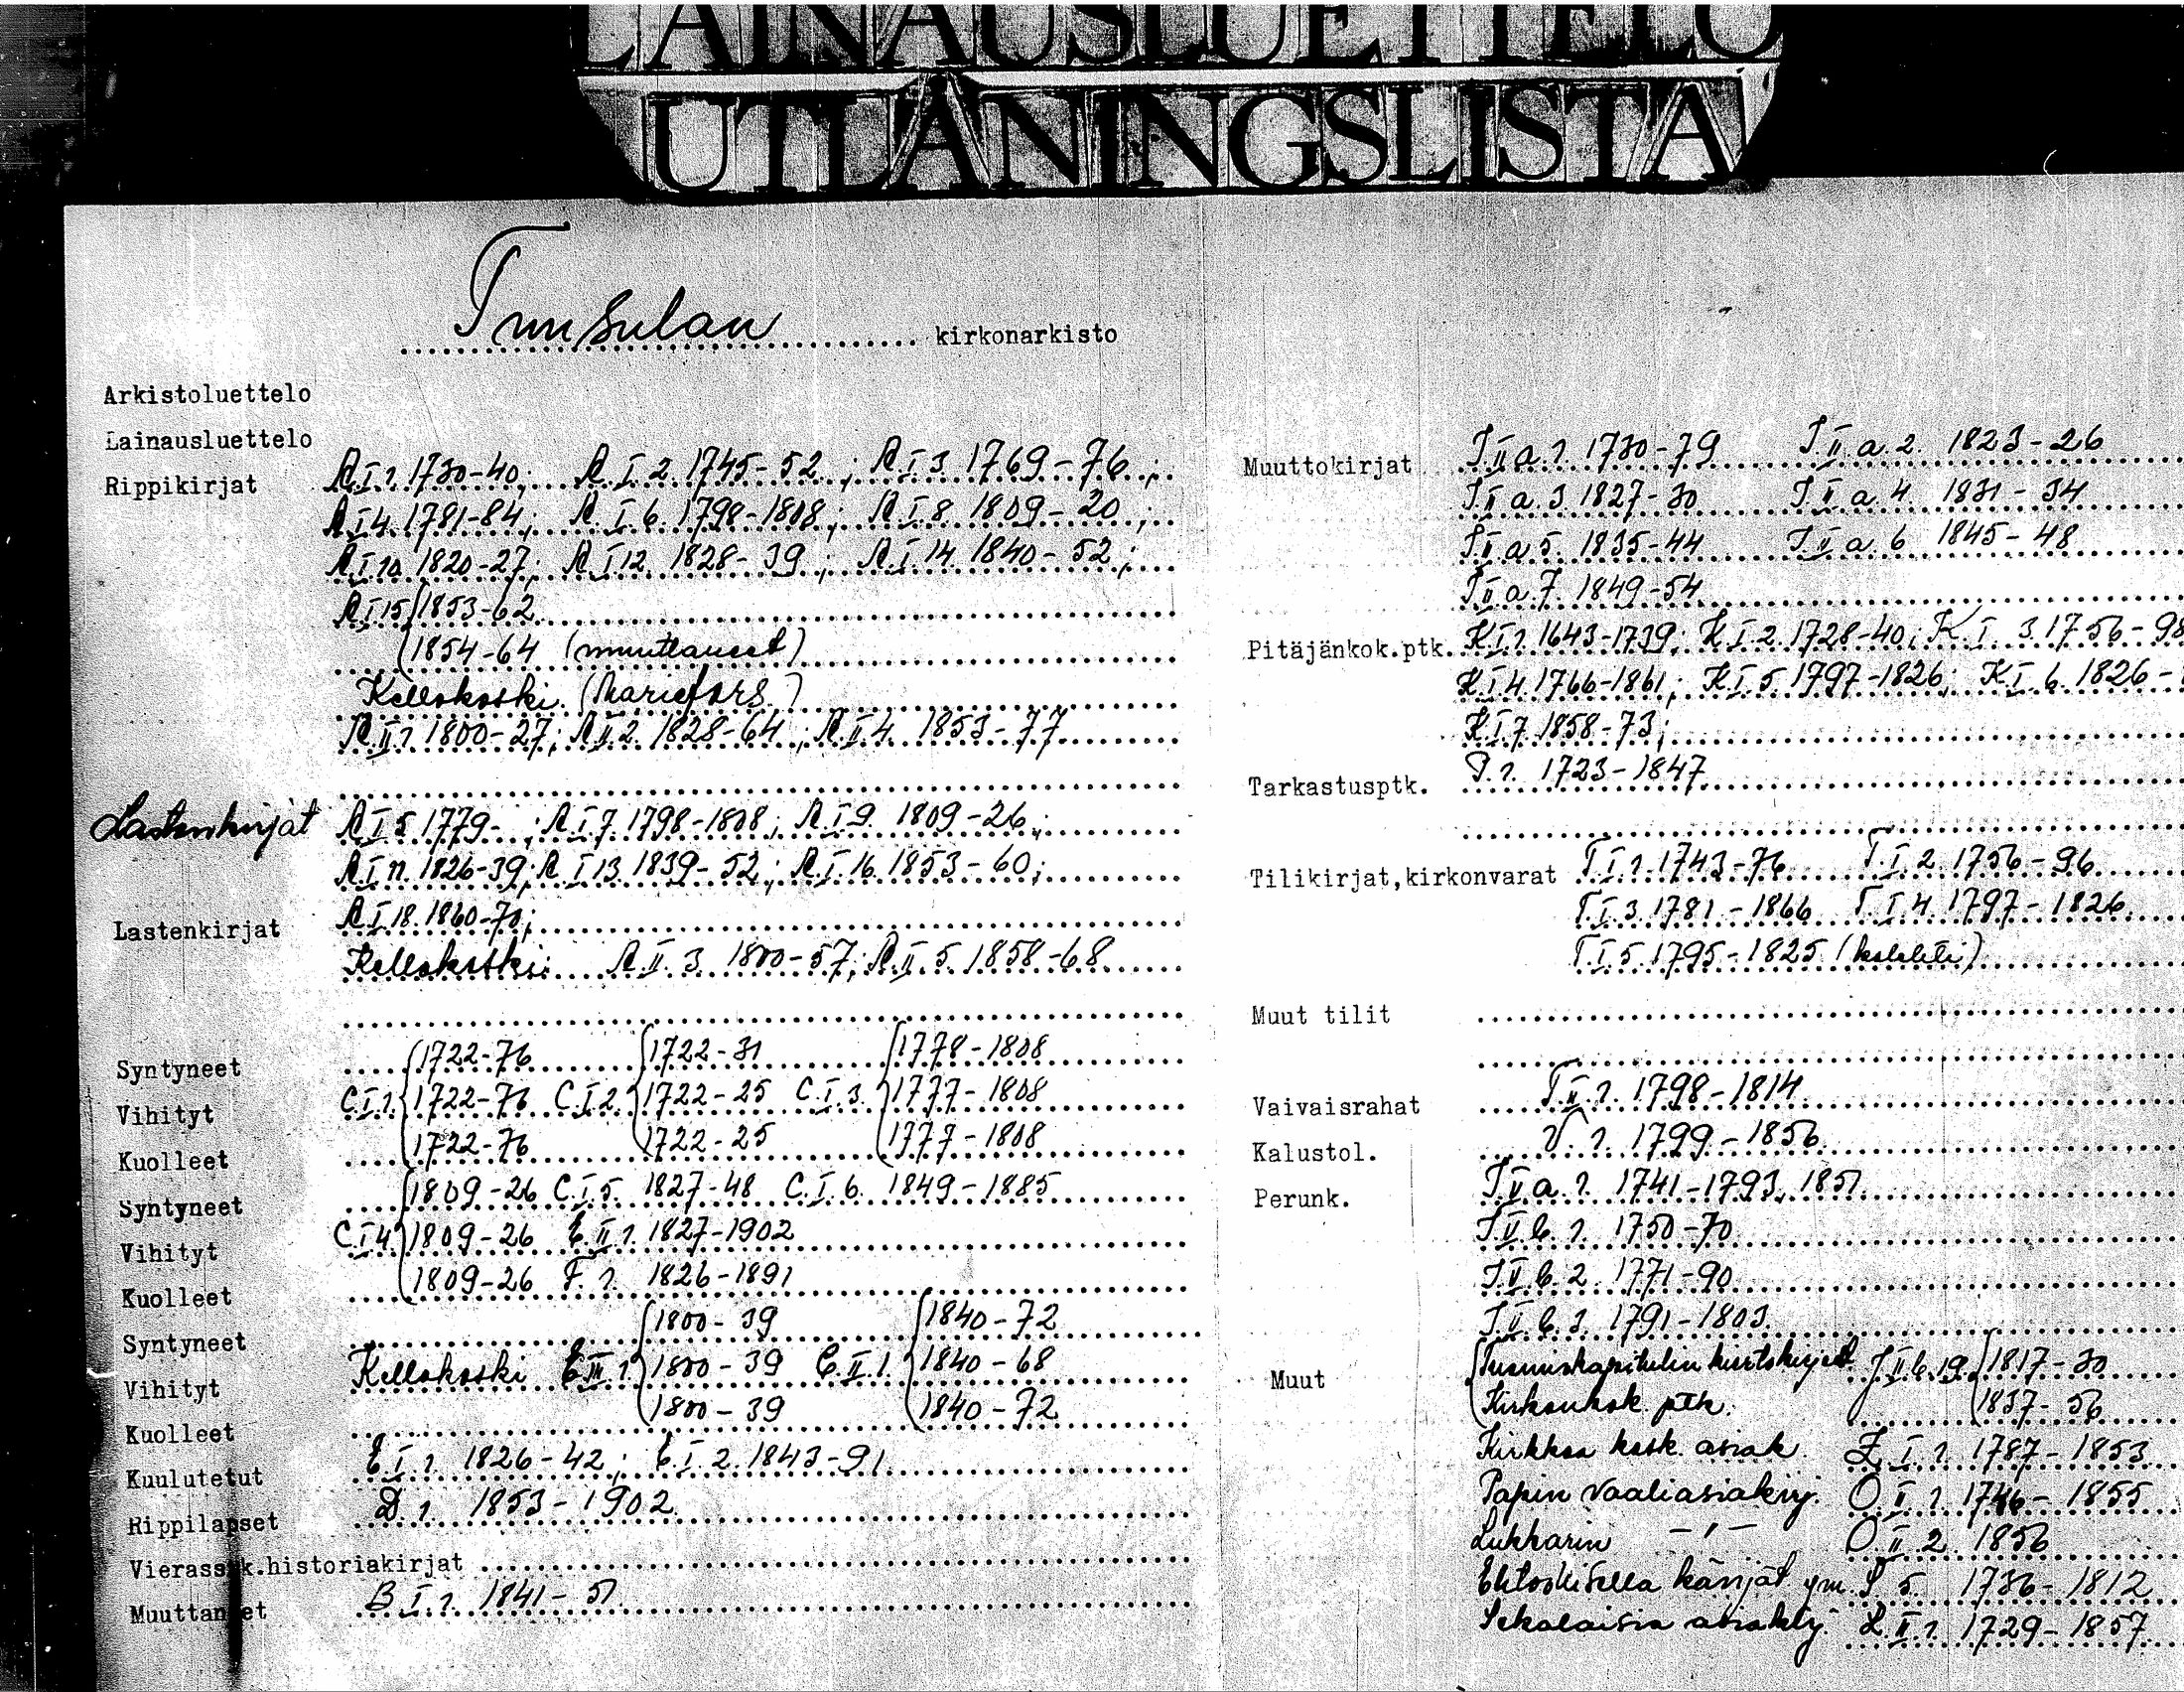 LAINAUSLUETTELO
UTLÅNINGSLISTA
Tuusulan kirkonarkisto
Arkistoluettelo
Lainausluettelo
Rippikirjat A I 1. 1730-40; A I 2. 1745-52; A I 3. 1769-76;
A I 4. 1781-84; A I 6. 1798-1808; A I 8. 1809-20;
A I 10. 1820-27; A I 12. 1828-39; A I 14. 1840-52;
A I 15 1853-62
1854-64 (muuttaneet)
Kellokoski (Mariefors)
A II 1. 1800-27; A II 2. 1828-64; A II 4. 1853-77
Lastenkirjat A I 5. 1779- ; A I 7. 1798-1808; A I 9. 1809-26;
A I 11. 1826-39; A I 13. 1839-52; A I 16. 1853-60;
Lastenkirjat A I 18. 1860-70;
Kellokoski: A II 3. 1800-57; A II 5. 1858-68
Syntyneet 1722-76 1722-31 1778-1808
Vihityt C I 1. 1722-76 C I 2. 1722-25 C I 3. 1777-1808
Kuolleet 1722-76 1722-25 1777-1808
Syntyneet 1809-26 C I 5. 1827-48 C I 6. 1849-1885
Vihityt C I 4 1809-26 E II 1. 1827-1902
Kuolleet 1809-26 F. 1. 1826-1891
Syntyneet 1800-39 1840-72
Vihityt Kellokoski 1800-39 C II 1. 1840-68
Kuolleet 1800-39 1840-72
Kuulutetut E I 1. 1826-42; E I 2. 1843-91
Rippilapset D 1. 1853-1902
Vierassrk.historiakirjat
Muuttaneet B I 1. 1841-51
Muuttokirjat I II a 1. 1730-79 I II a 2. 1823-26
I II a 3 1827-30 I II a 4. 1831-34
I II a 5. 1835-44 I II a 6 1845-48
I II a 7. 1849-54
Pitäjänkok.ptk. K I 1. 1643-1739; K I 2. 1728-40; K I 3. 1756-98
K I 4. 1766-1861; K I 5. 1797-1826; K I 6. 1826-
K I 7. 1858-73;
Tarkastusptk. 1723-1847
Tilikirjat,kirkonvarat T I 1. 1743-76 T I 2. 1756-96
T I 3. 1781-1866 T I 4. 1797-1826
T I 5. 1795-1825 (kolehti)
Muut tilit
Vaivaisrahat T II 1. 1798-1814
Kalustol. V. 1. 1799-1856
Perunk. I V a. 1. 1741-1793, 1851
I V b. 1. 1750-70
I V b. 2. 1771-90
I V b. 3. 1791-1803
Muut Tuomiokapitulin kiertokirjeet 1817-30
Kirkonkok. ptk. 1837-56
Kirkkoa kosk. asiak. 1. 1787-1853
Papin vaaliasiakirj. O II 1. 1746-1855
Lukkarin -"- O II 2. 1856
Ehtoollisella kävijät ym. 5. 1736-1812
Sekalaisia asiakirj. II 1. 1729-1857